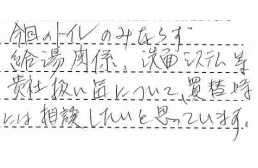 今回のトイレのみならず
給湯関係、洗面システム等
貴社扱い品について、買替時
には相談したいと思っています。